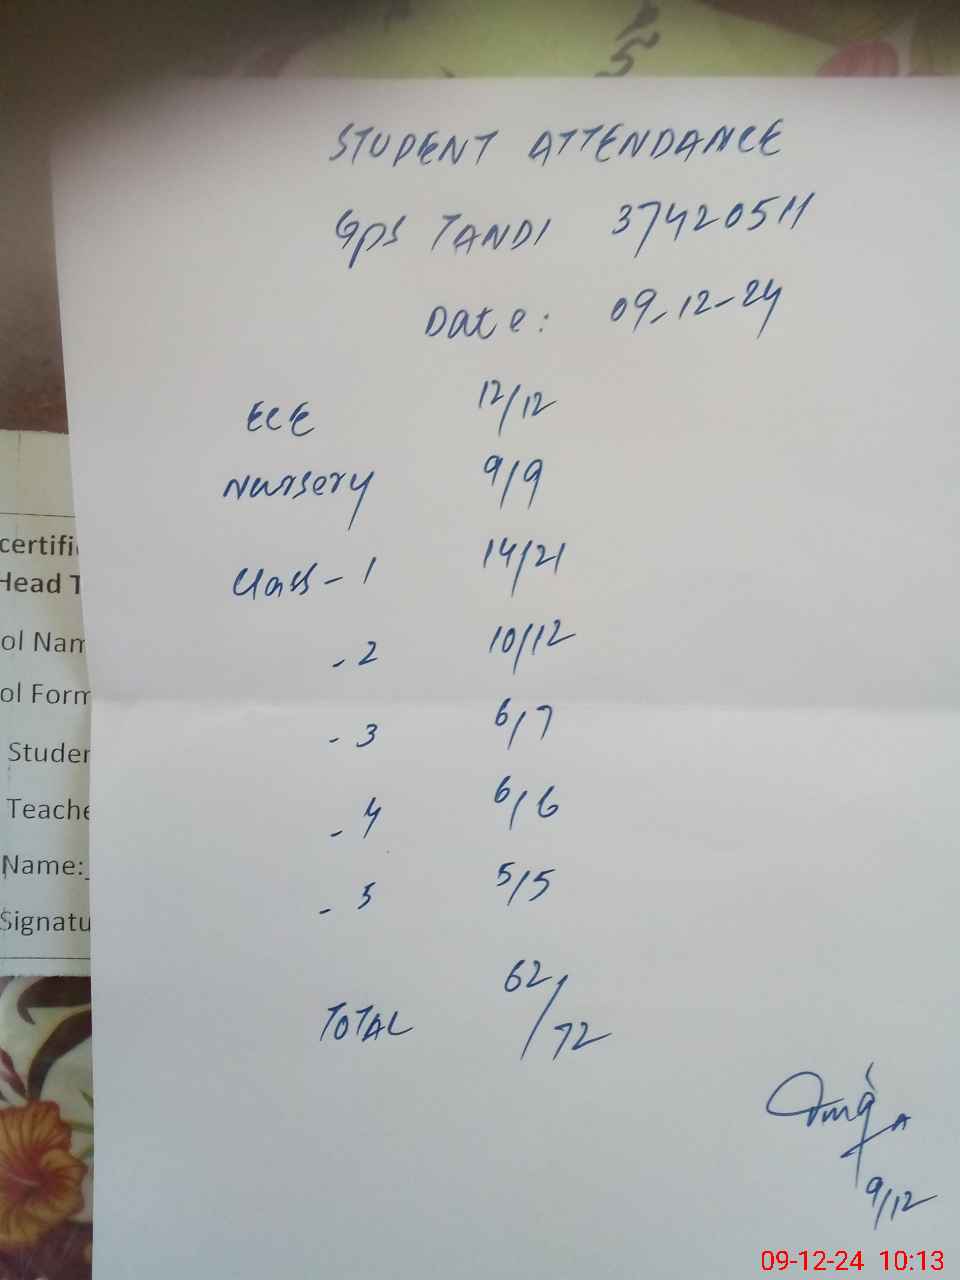 STUDENT ATTENDANCE
GPS TANDI 37420511
Date: 09-12-24
ECE 12/12
Nursery 9/9
Class - 1 14/21
- 2 10/12
- 3 6/7
- 4 6/6
- 5 5/5
TOTAL 62/72
9/12
certifi
Head T
ol Nam
ol Form
Studen
Teache
Name:_
Signatu
09-12-24 10:13